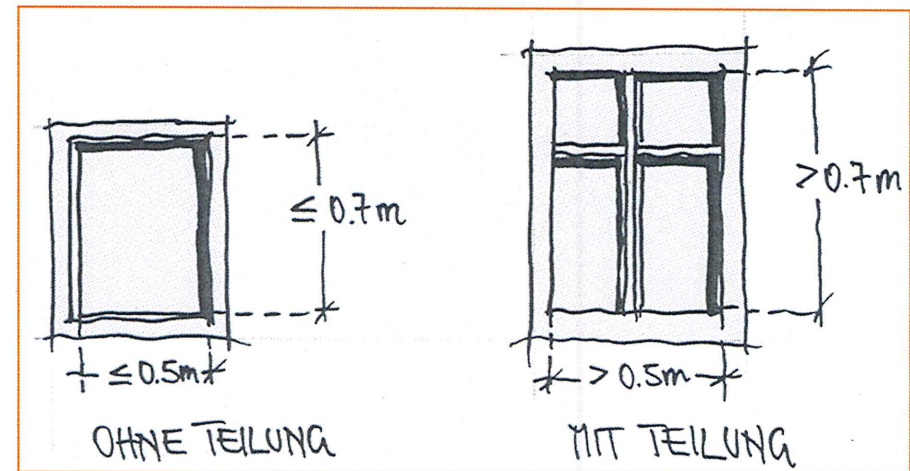 ≤ 0.7m
≤ 0.5m
OHNE TEILUNG
> 0.7m
> 0.5m
MIT TEILUNG